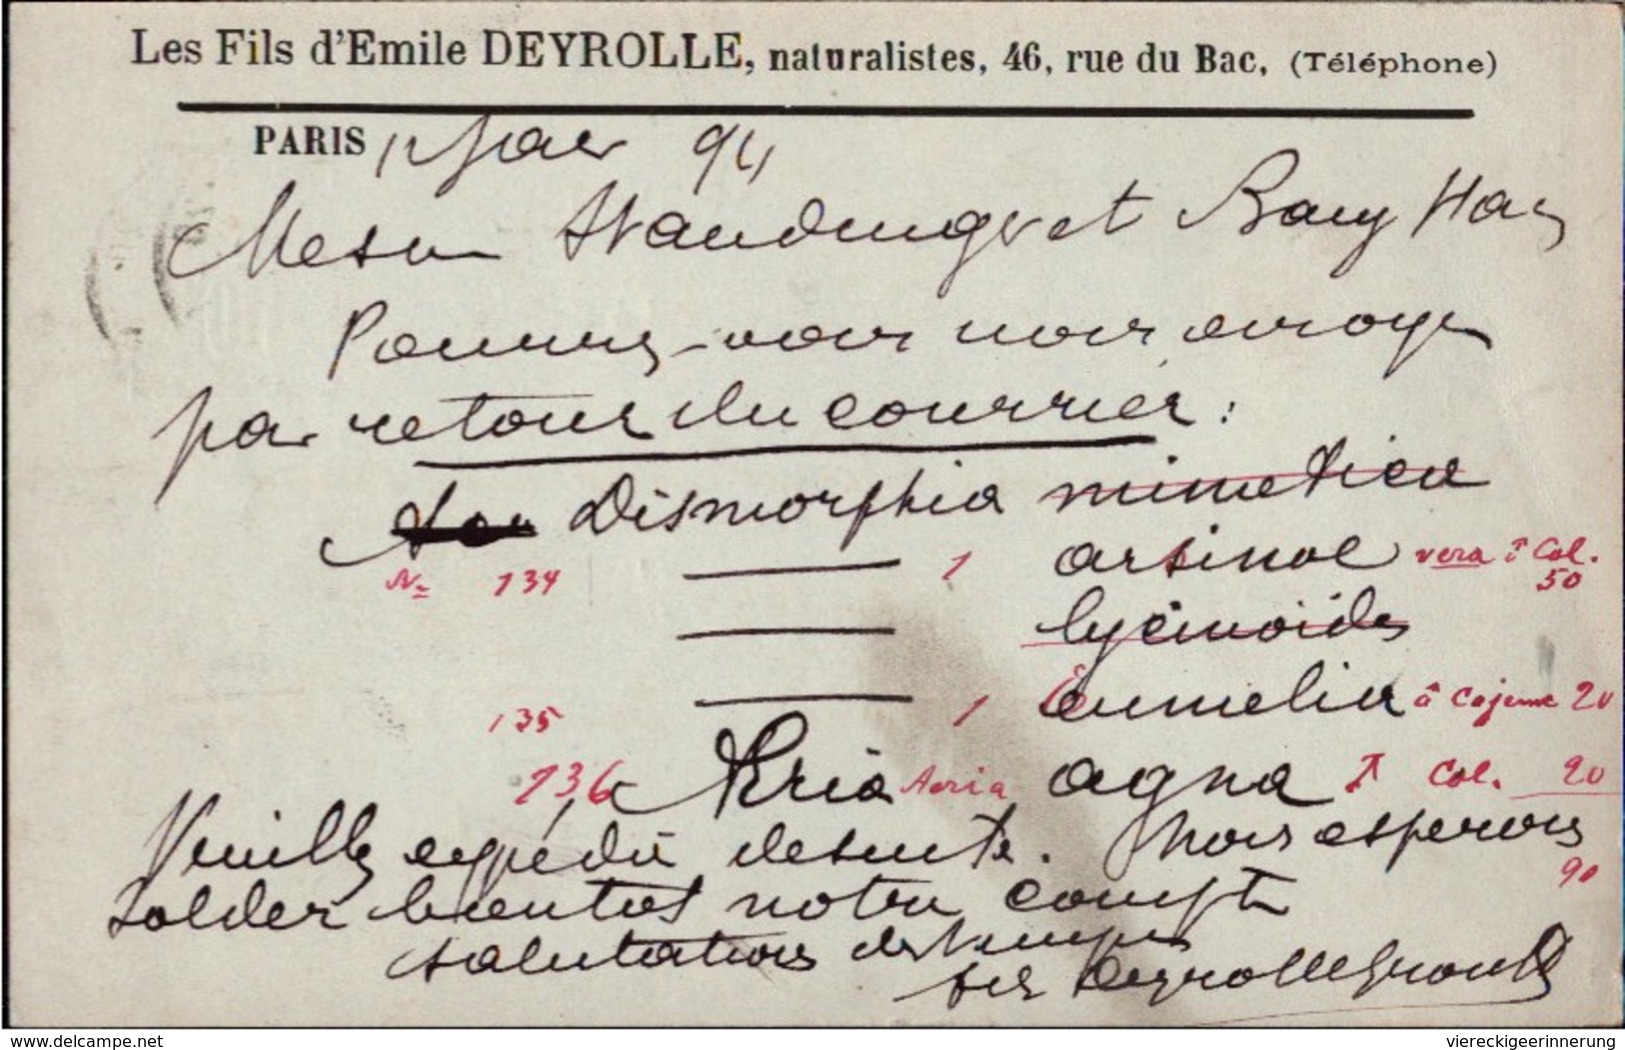 Les Fils d'Emile DEYROLLE, naturalistes, 46, rue du Bac, (Téléphone)
PARIS 94
Staudinger et Bang Haas
Pouvez-vous nous envoyer
par retour du courrier :
Dismorphia mimetica
Nº 134 1 arsinoe vera Col. 50
lycinoides
135 1 eumelia à Cajenne 20
136 Aeria agna Col. 20
Veuillez expédier de suite. Nous esperons
90
solder bientot notre compte
salutations
Deyrolle
delcampe.net
viereckigeerinnerung